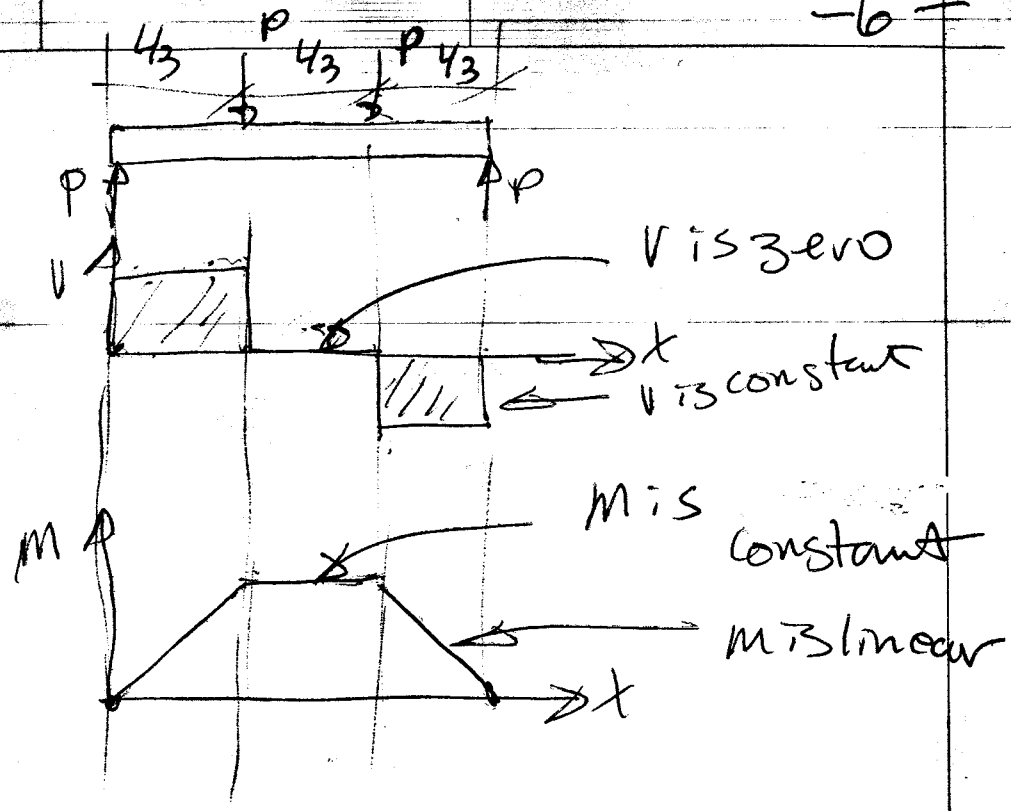 -6-
L/3 P L/3 P L/3
P P
V
V is zero
X
V is constant
M is
constant
M
M is linear
X